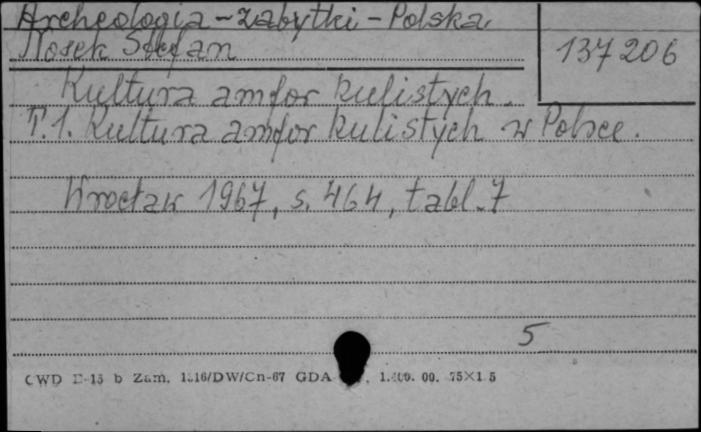 Archeologia - zabytki - Polska
Nosek Stefan
137206
Kultura amfor kulistych.
T.1. Kultura amfor kulistych w Polsce.
Wrocław 1967, s. 464, tabl. 7
5
CWD D-15 b Zam. 1316/DW/Cn-67 GDA